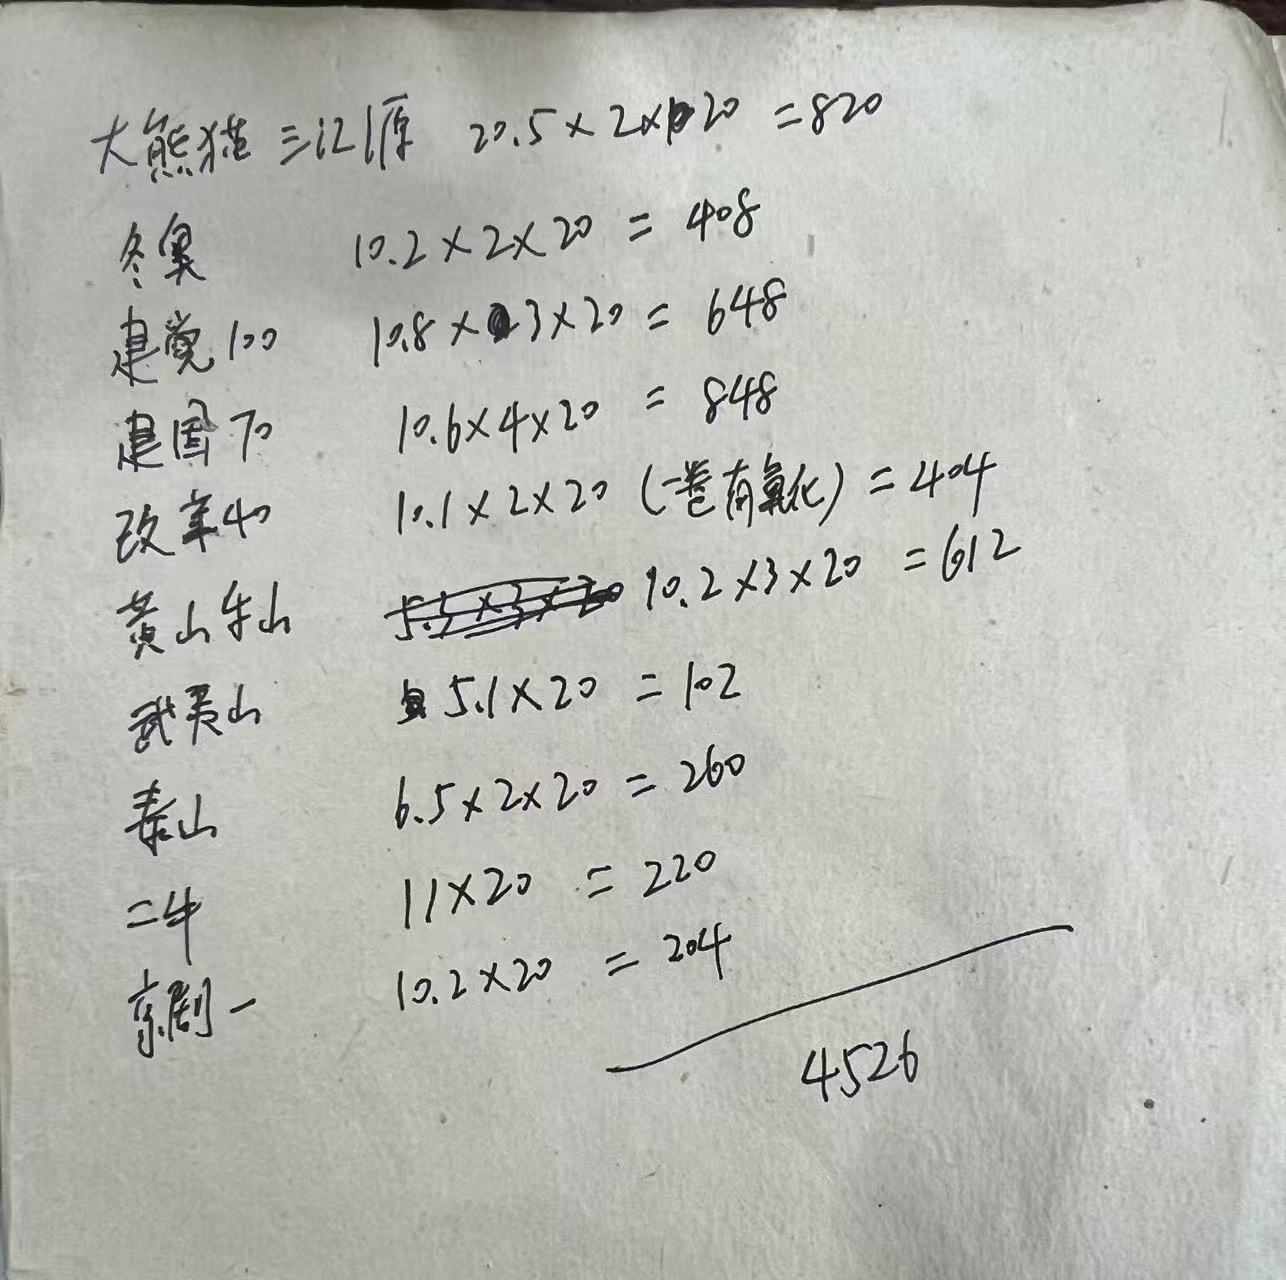 大熊猫 三江源 20.5×2×20 =820
冬奥 10.2×2×20 = 408
建党100 10.8×3×20 = 648
建国70 10.6×4×20 = 848
改革40 10.1×2×20 (一卷有氧化) =404
黄山牛山 10.2×3×20 =612
武夷山 5.1×20 =102
泰山 6.5×2×20 =260
二牛 11×20 =220
京剧一 10.2×20 =204
4526